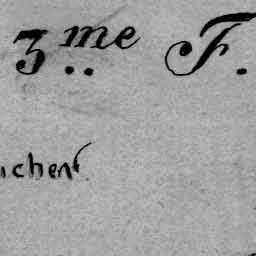 3.me F.
ichens